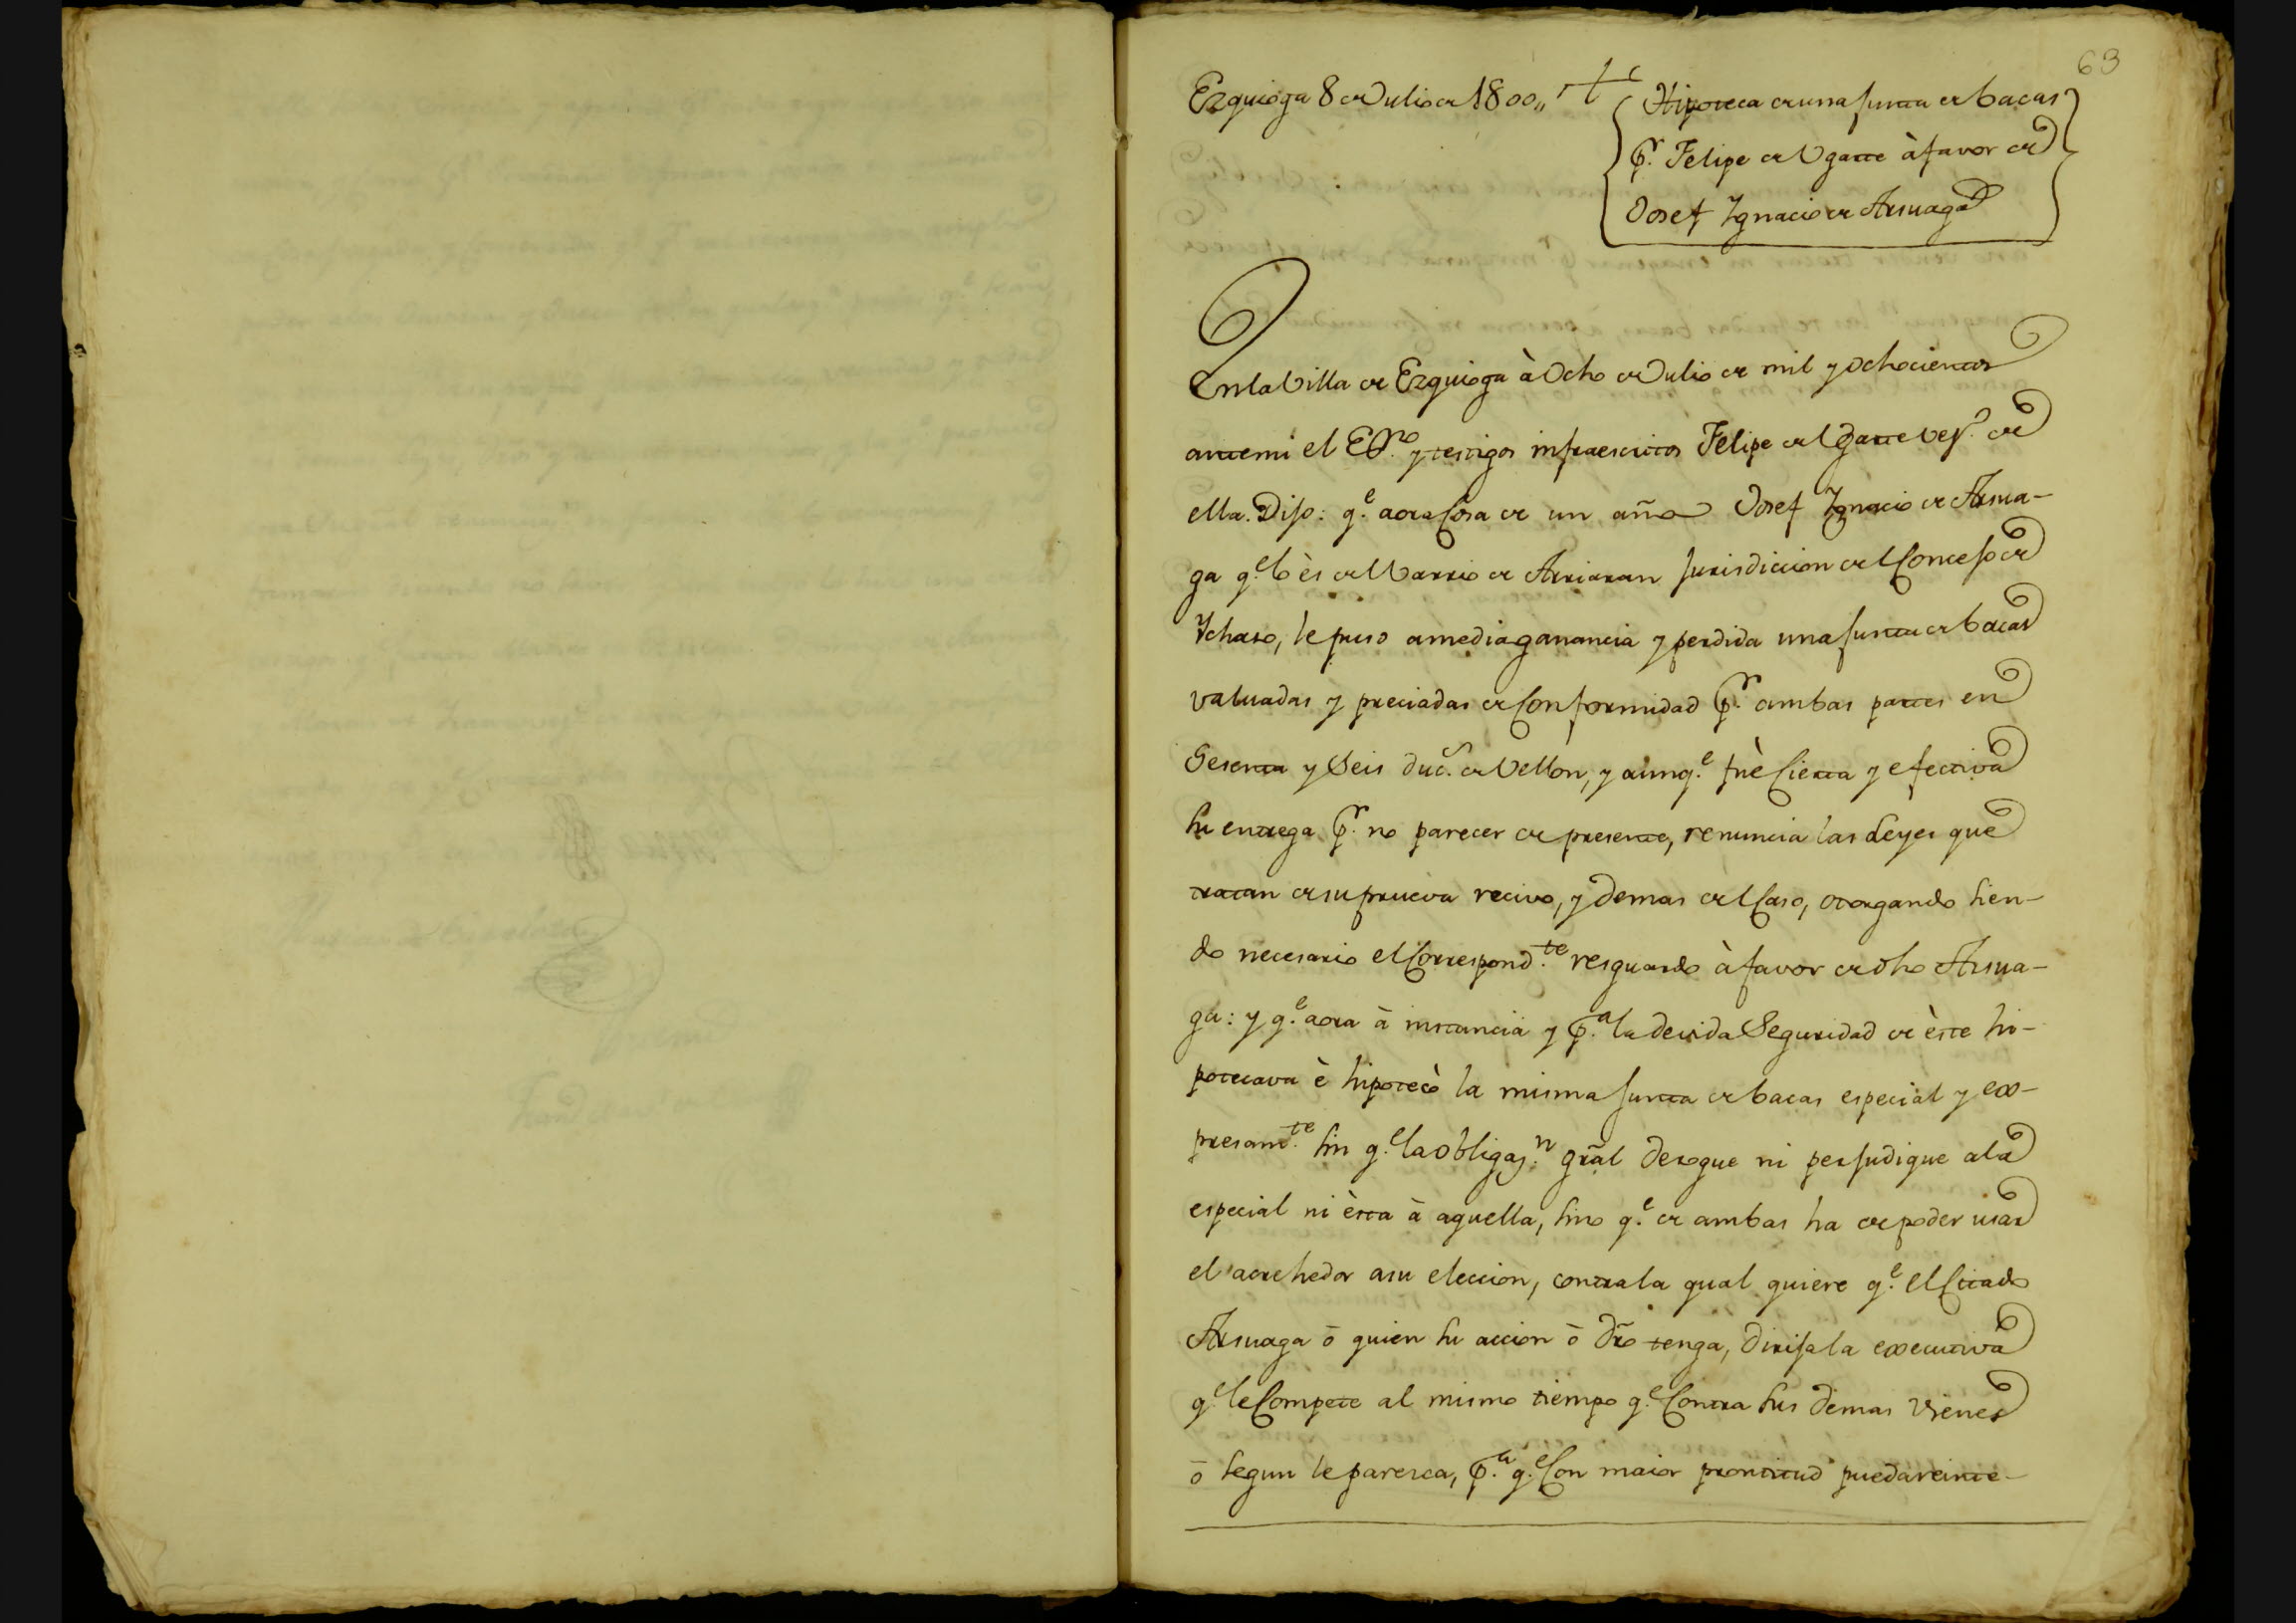 63
Ezquioga 8 de Julio de 1800,,
Hipoteca de una junta de bacas
pr. Felipe de Ugarte à favor de
Josef Ygnacio de Arsuaga
En la Villa de Ezquioga à Ocho de Julio de mil y ochocientos
ante mi el Essno. y testigos infraescritos Felipe de Ugarte vezo. de
ella. Dijo: qe. aora cosa de un año Josef Ygnacio de Arsua-
ga qe. lo ès del Varrio de Arriaran jurisdiccion del Concejo de
Ychaso, le puso a media ganancia y perdida una junta de bacas
valuadas y preciadas de conformidad pr. ambas partes en
Sesenta y Seis ducs. de Vellon, y aunqe. fuè Cierta y efectiva
su entrega pr. no parecer de presente, renuncia las Leyes que
tratan de su prueva recivo, y demas del Caso, otorgando sien-
do necesario el Correspondte. resguardo à favor de dho Arsua-
ga: y qe. aora à instancia y pa. la devida Seguridad de èste hi-
potecava è hipotecò la misma junta de bacas especial y ex-
presamte. sin qe. la obligazn. gral derogue ni perjudique a la
especial ni èsta à aquella, sino qe. de ambas ha de poder usar
el acrehedor a su eleccion, contra la qual quiere qe. el Citado
Arsuaga ò quien su accion ò dro tenga, dirija la executiva
qe. le Compete al mismo tiempo qe. Contra sus demas Vienes
ò segun le paresca, pa. qe. Con maior prontitud pueda reinte-